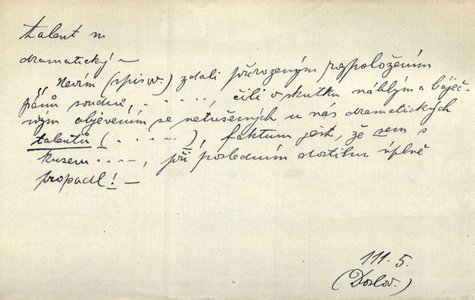 talent m
dramatický —
Nevím (spisov.) zdali přirozeným rozpoložením
pánů soudců, . . . . ., čili v skutku náhlým a báječ-
ným objevením se netušených u nás dramatických
talentů (. . . — .), faktum jest, že sem s
kusem . . . —, při posledním dostihu úplně
propadl! —
111. 5.
(Doslov.)